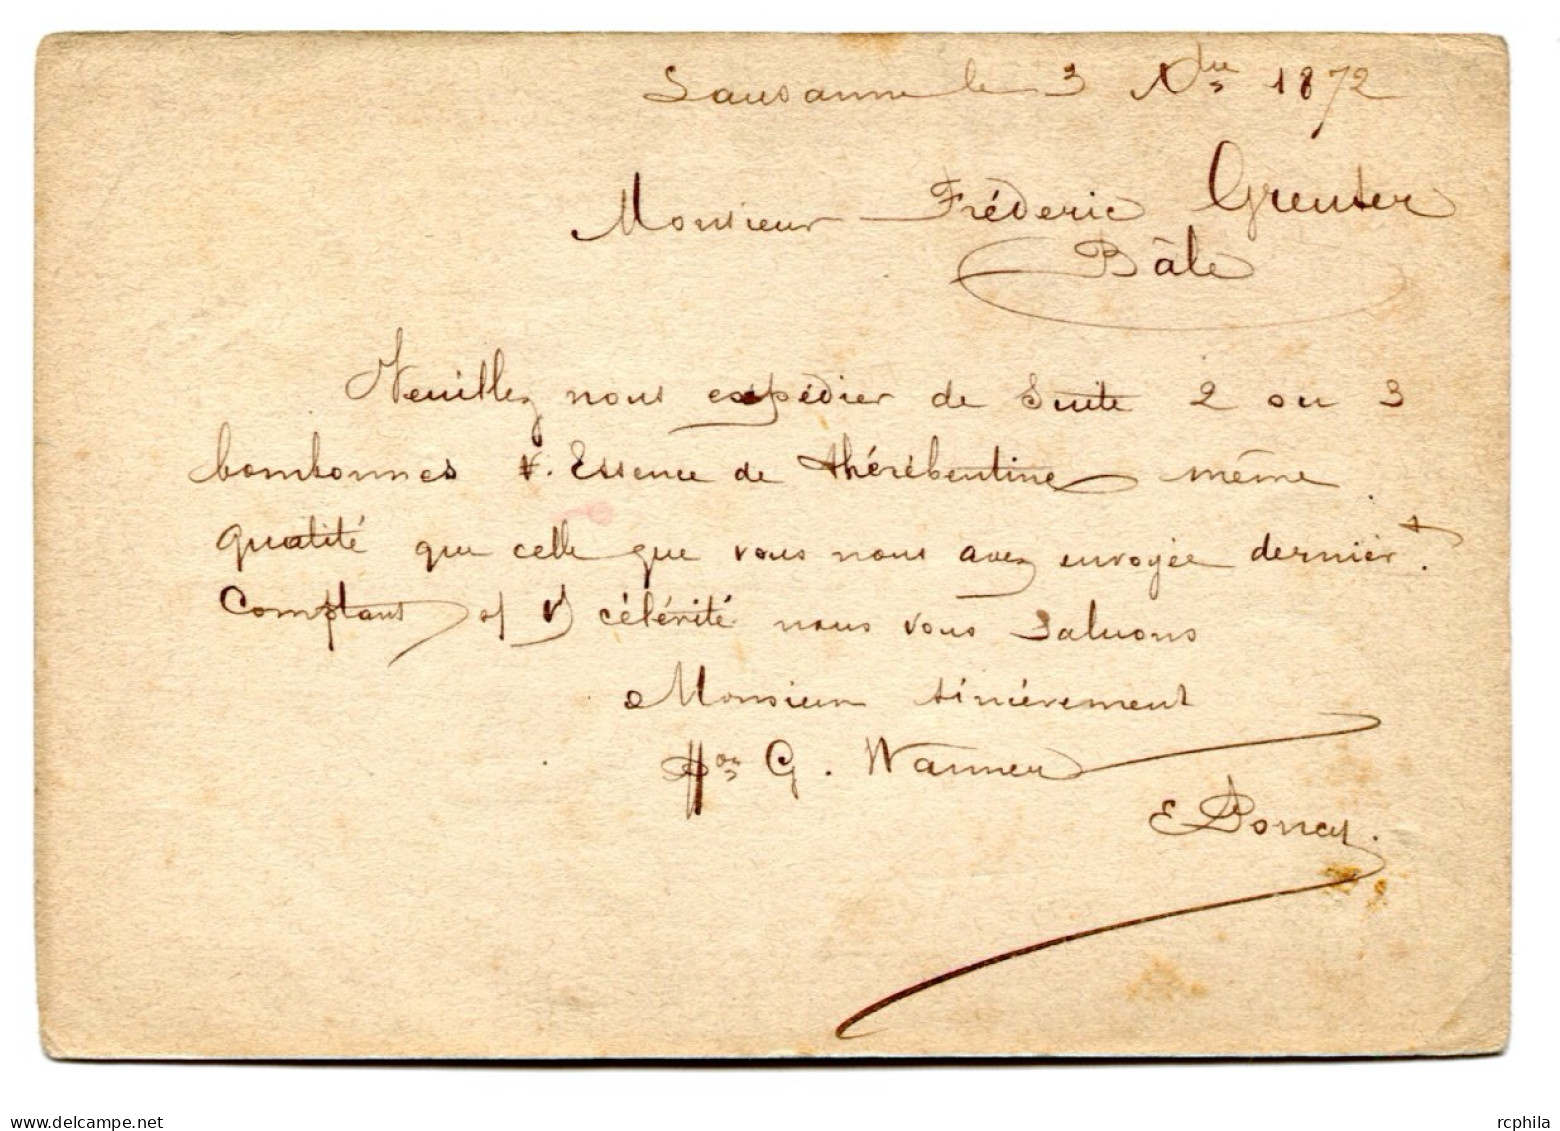 Lausanne le 3 Xbre 1872
Monsieur Fréderic Greuter
Bâle
Veuillez nous expédier de suite 2 ou 3
bombonnes Essence de thérébentine même
qualité que celle que vous nous avez envoyée dernièrt.
Comptant sf vf célérité nous vous saluons
Monsieur sincèrement
pon G. Wanner
E
rcphila
delcampe.net